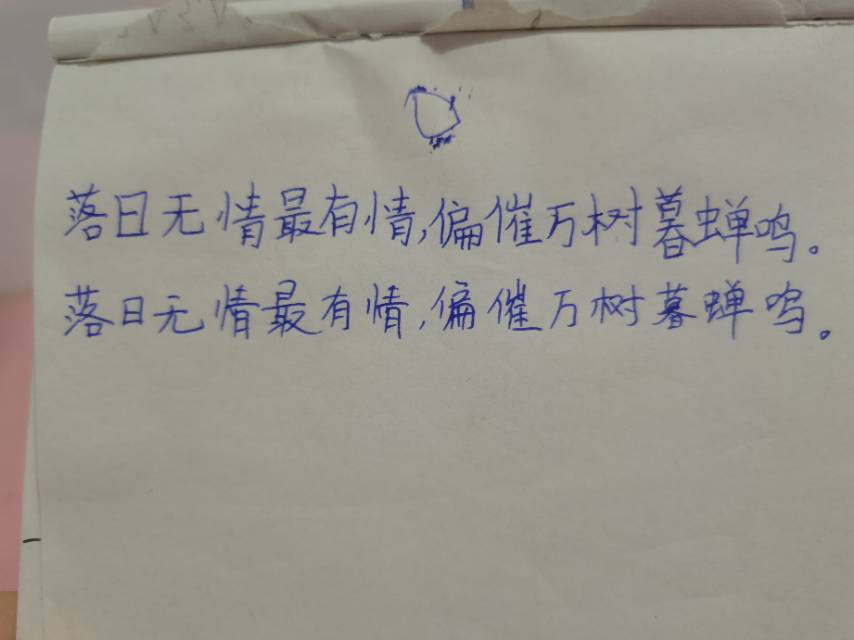 落日无情最有情,偏催万树暮蝉鸣。
落日无情最有情,偏催万树暮蝉鸣。